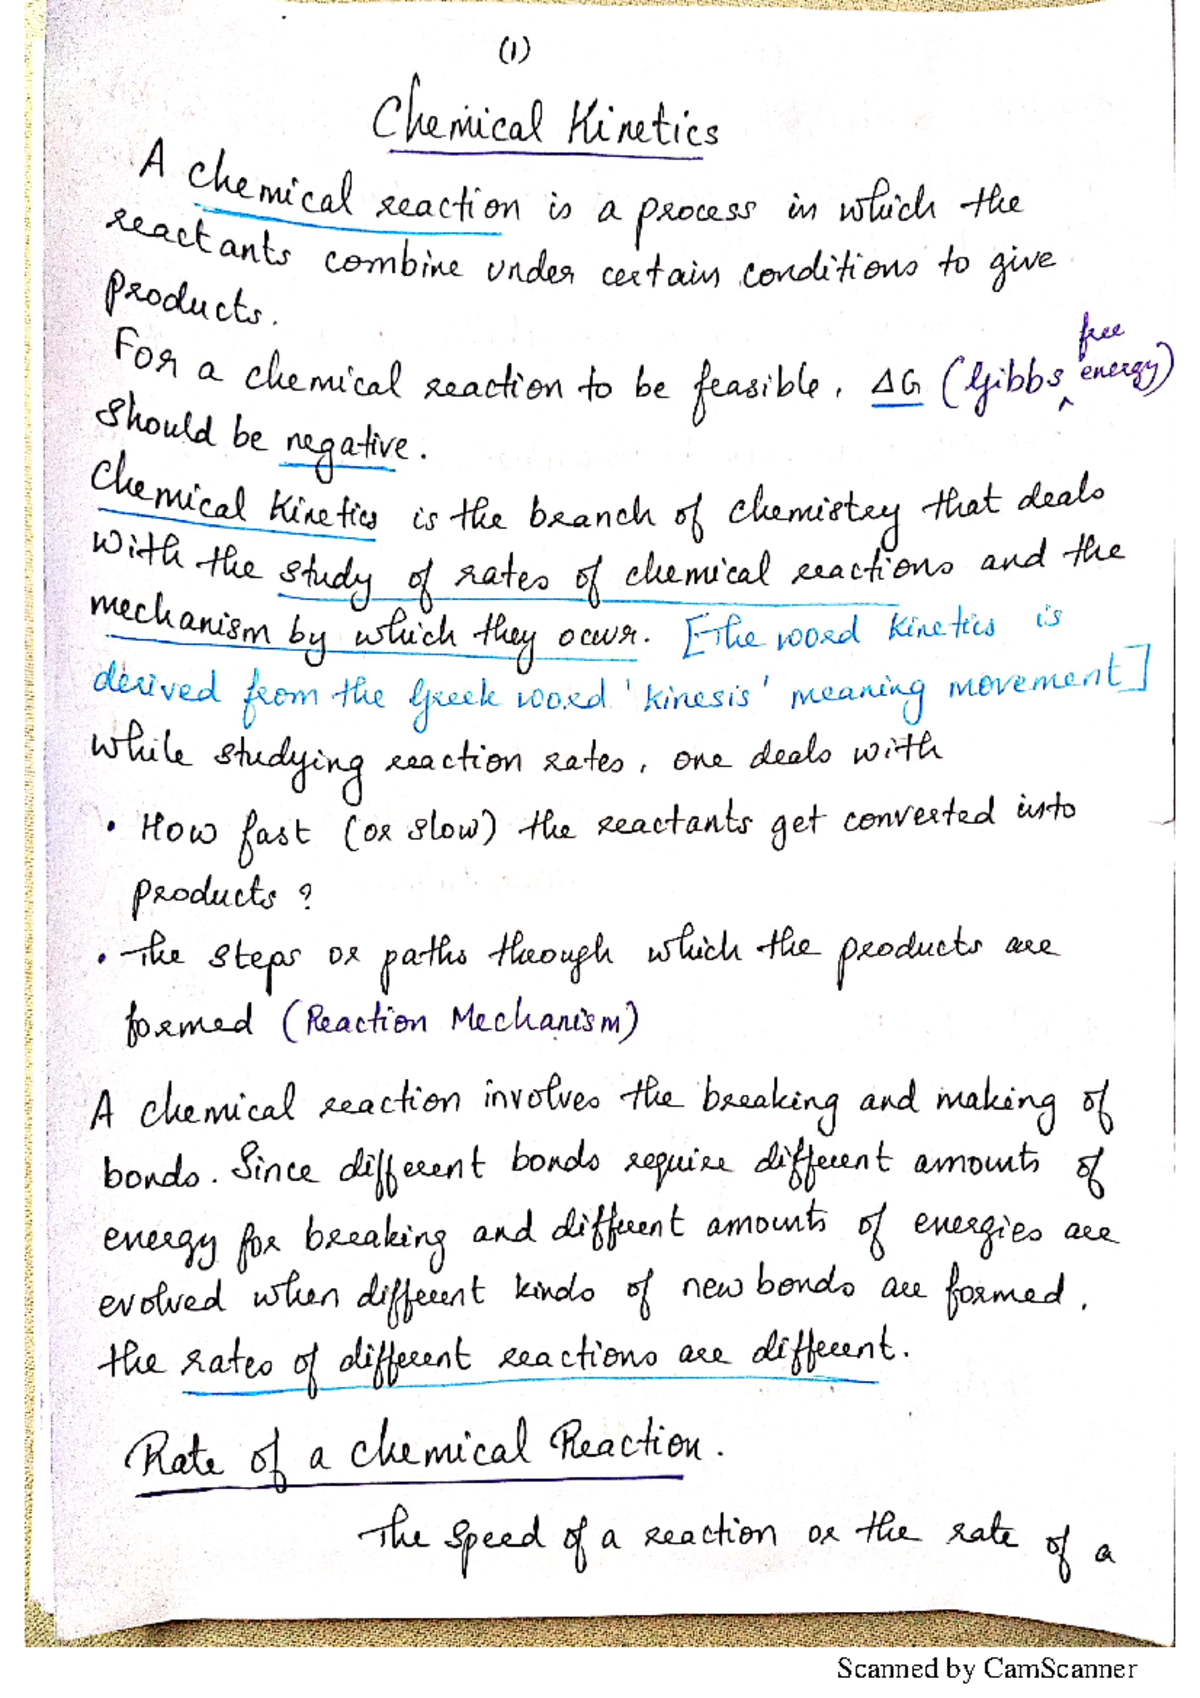 (1)
Chemical Kinetics
A chemical reaction is a process in which the
reactants combine under certain conditions to give
products.
free
For a chemical reaction to be feasible, ΔG (Gibbs ^ energy)
should be negative.
Chemical Kinetics is the branch of chemistry that deals
with the study of rates of chemical reactions and the
mechanism by which they occur. [The word kinetics is
derived from the Greek word 'kinesis' meaning movement]
While studying reaction rates, one deals with
• How fast (or slow) the reactants get converted into
products ?
• The steps or paths through which the products are
formed (Reaction Mechanism)
A chemical reaction involves the breaking and making of
bonds. Since different bonds require different amounts of
energy for breaking and different amounts of energies are
evolved when different kinds of new bonds are formed,
the rates of different reactions are different.
Rate of a chemical Reaction.
The speed of a reaction or the rate of a
Scanned by CamScanner